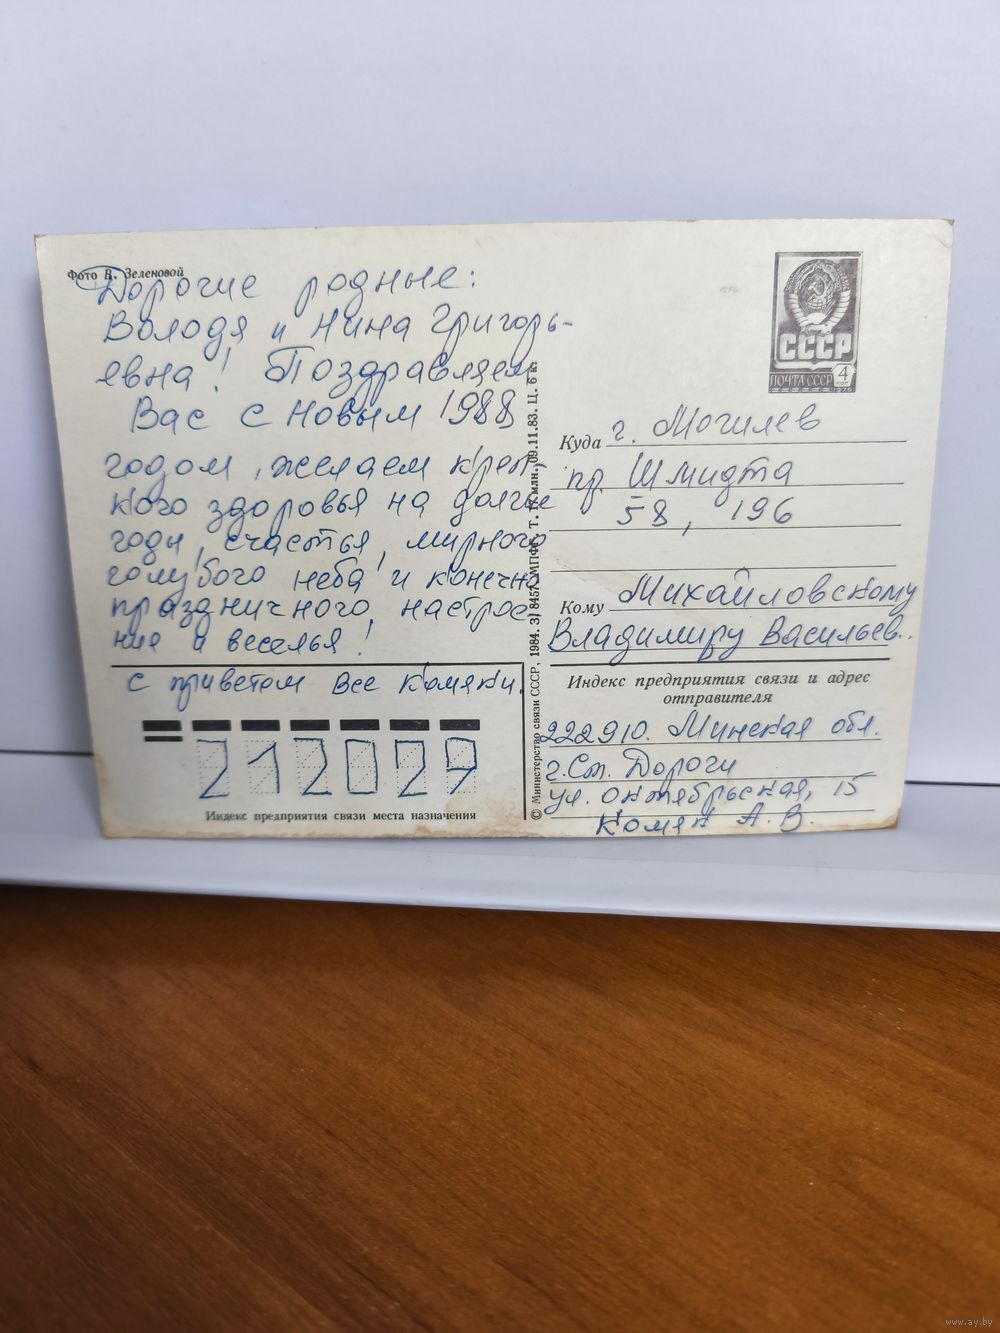 Фото В. Зеленовой
Дорогие родные:
Володя и Нина Григорь-
евна! Поздравляем
Вас с Новым 1988
годом, желаем креп-
кого здоровья на долгие
годы, счастья, мирного
голубого неба и конечно
праздничного, настрое-
ния и веселья!
с приветом все Комяки.
212029
Индекс предприятия связи места назначения
© Министерство связи СССР, 1984. З/ 8457. МПФГ. Т. млн. 09.11.83. Ц. 6 к.
СССР
ПОЧТА СССР 4 коп
1976
Куда г. Могилев
пр Шмидта
58, 196
Кому Михайловскому
Владимиру Васильев..
Индекс предприятия связи и адрес
отправителя
222910. Минская обл.
г.Ст. Дороги
ул. Октябрьская, 15
Комяк А. В.
www.ay.by